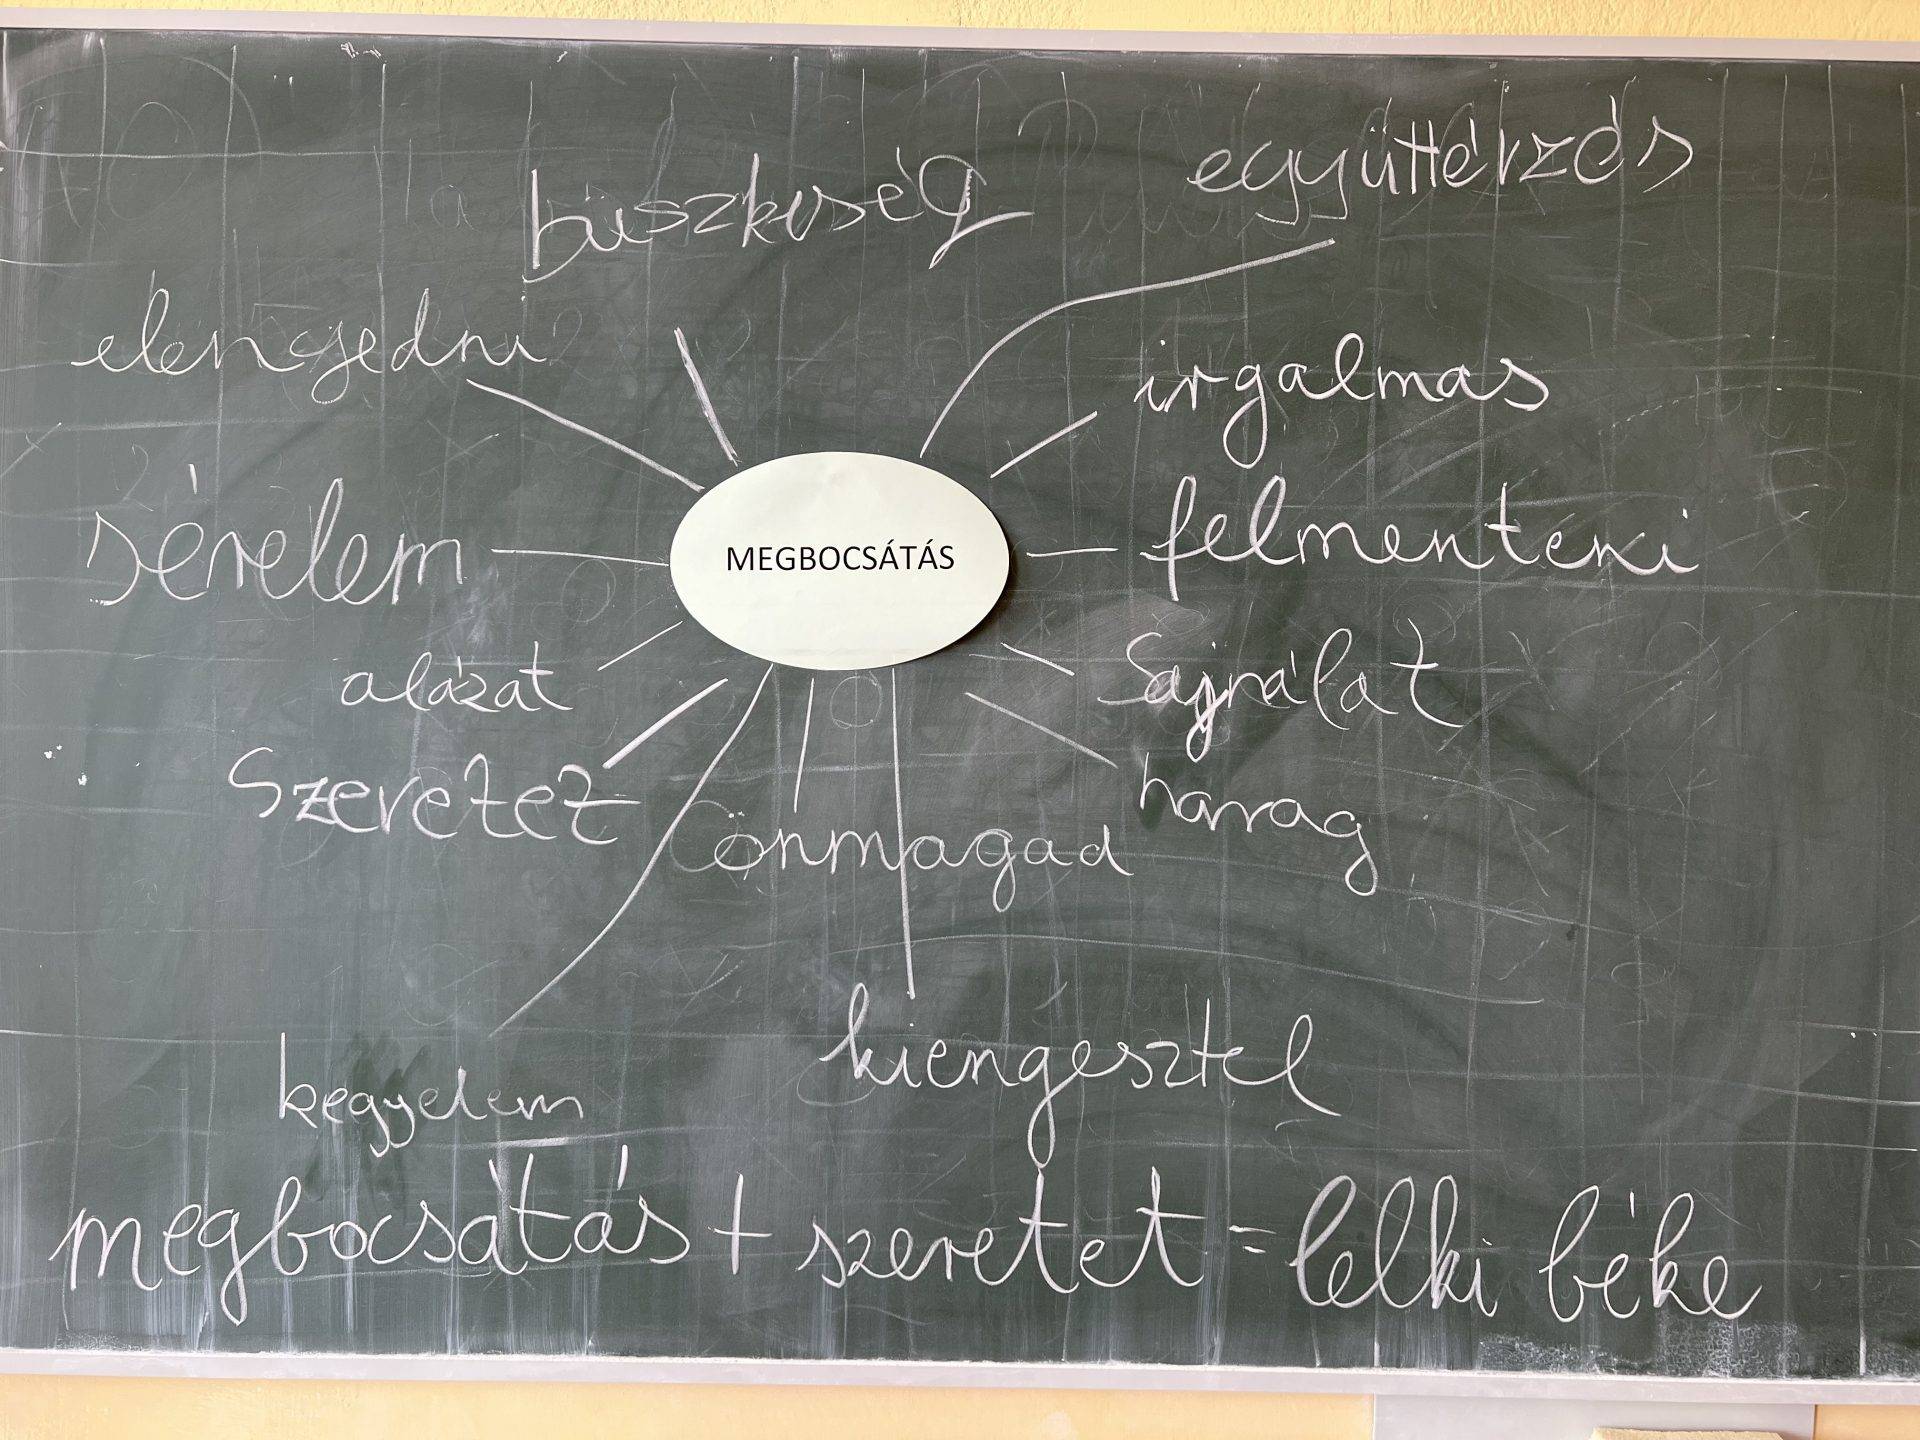 büszkeség
együttérzés
elengedni
irgalmas
sérelem
MEGBOCSÁTÁS
felmenteni
alázat
Sajnálat
Szeretet
harag
önmagad
kiengesztel
kegyelem
megbocsátás + szeretet = lelki béke